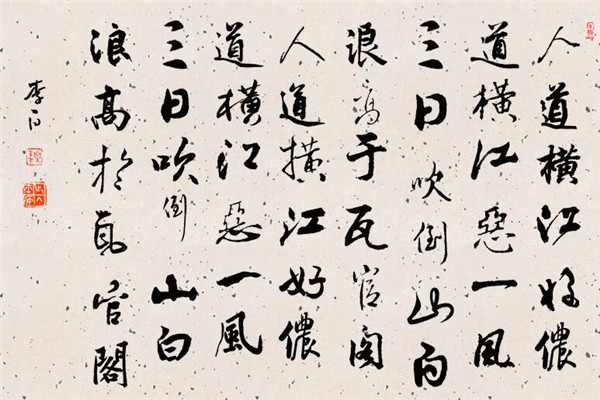 人道橫江好儂
道橫江惡一風
三日吹倒山白
浪高于瓦官閣
人道橫江好儂
道橫江惡一風
三日吹倒山白
浪高於瓦官閣
李白